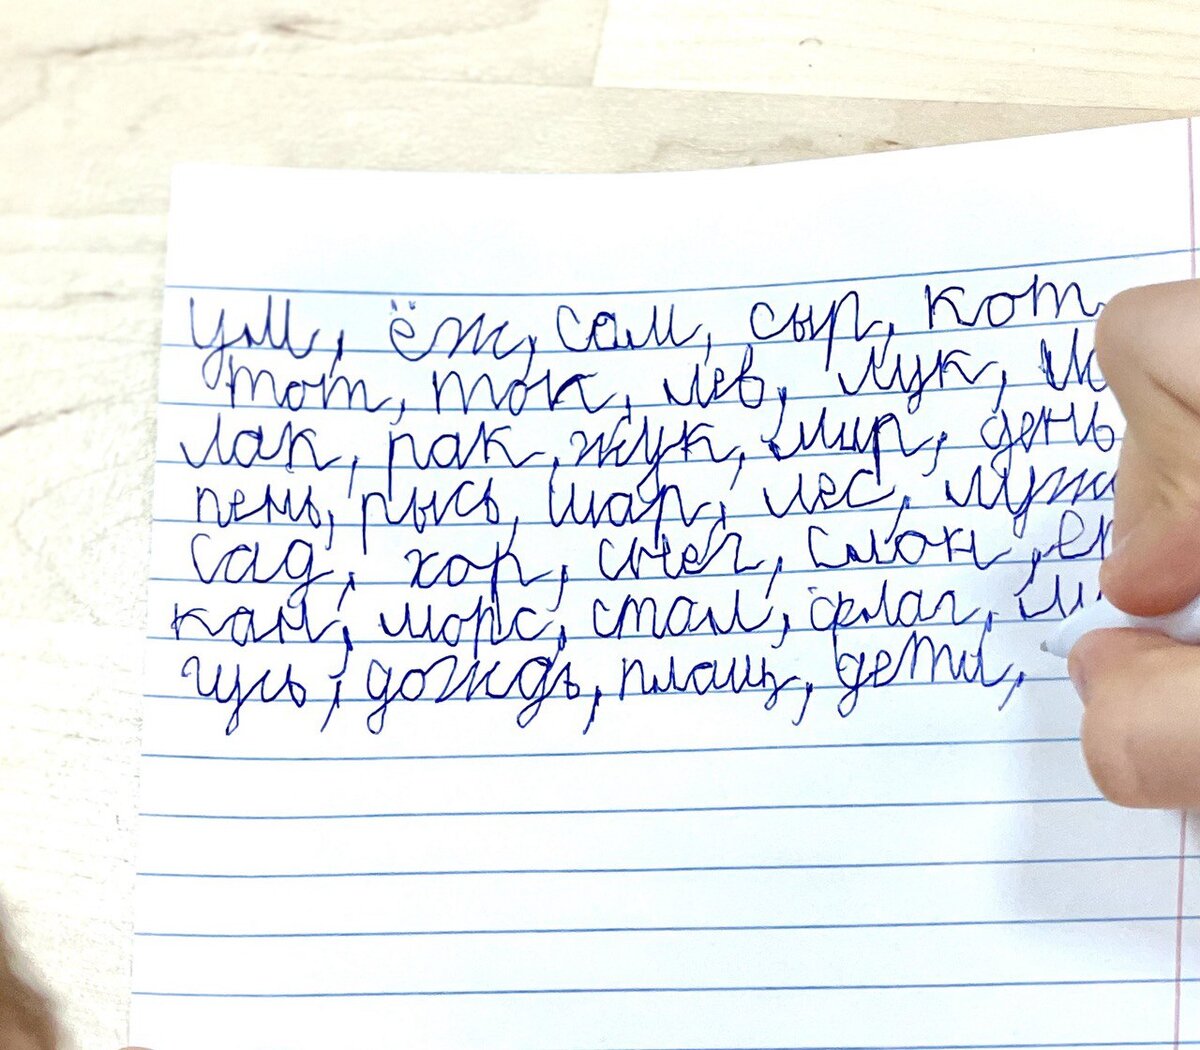 ум, ёж, сом, сыр, кот
тот, ток, лев, лук,
лак, рак, жук, мир, день
пень, рысь, шар, лес,
сад, хор, снег, слон,
кон, морс, стол, флаг,
гусь, дождь, плащ, дети,